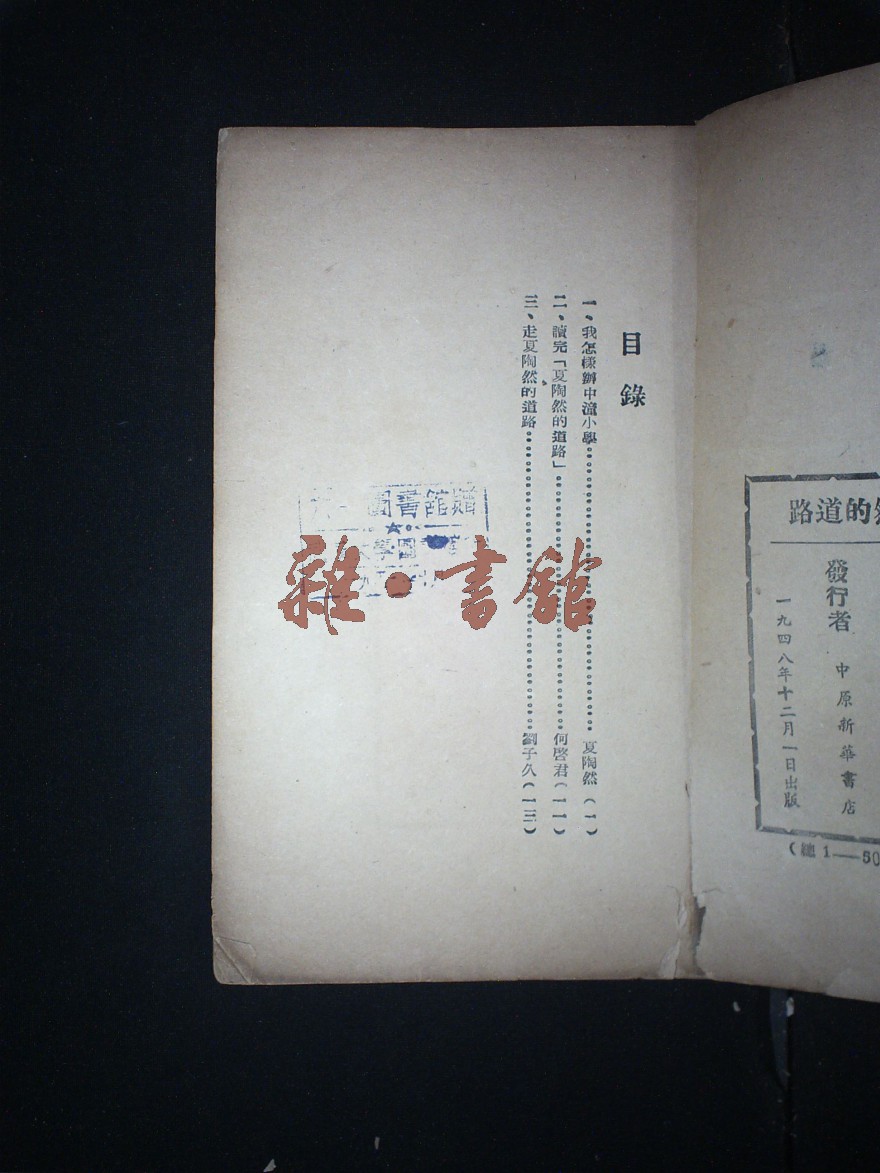 目錄
一、我怎樣辦中流小學……夏陶然（一）
二、讀完「夏陶然的道路」……何啓君（一一）
三、走夏陶然的道路……劉子久（一三）
圖書館
雜·書館
的道路
發行者 中原新華書店
一九四八年十二月一日出版
（總1—50